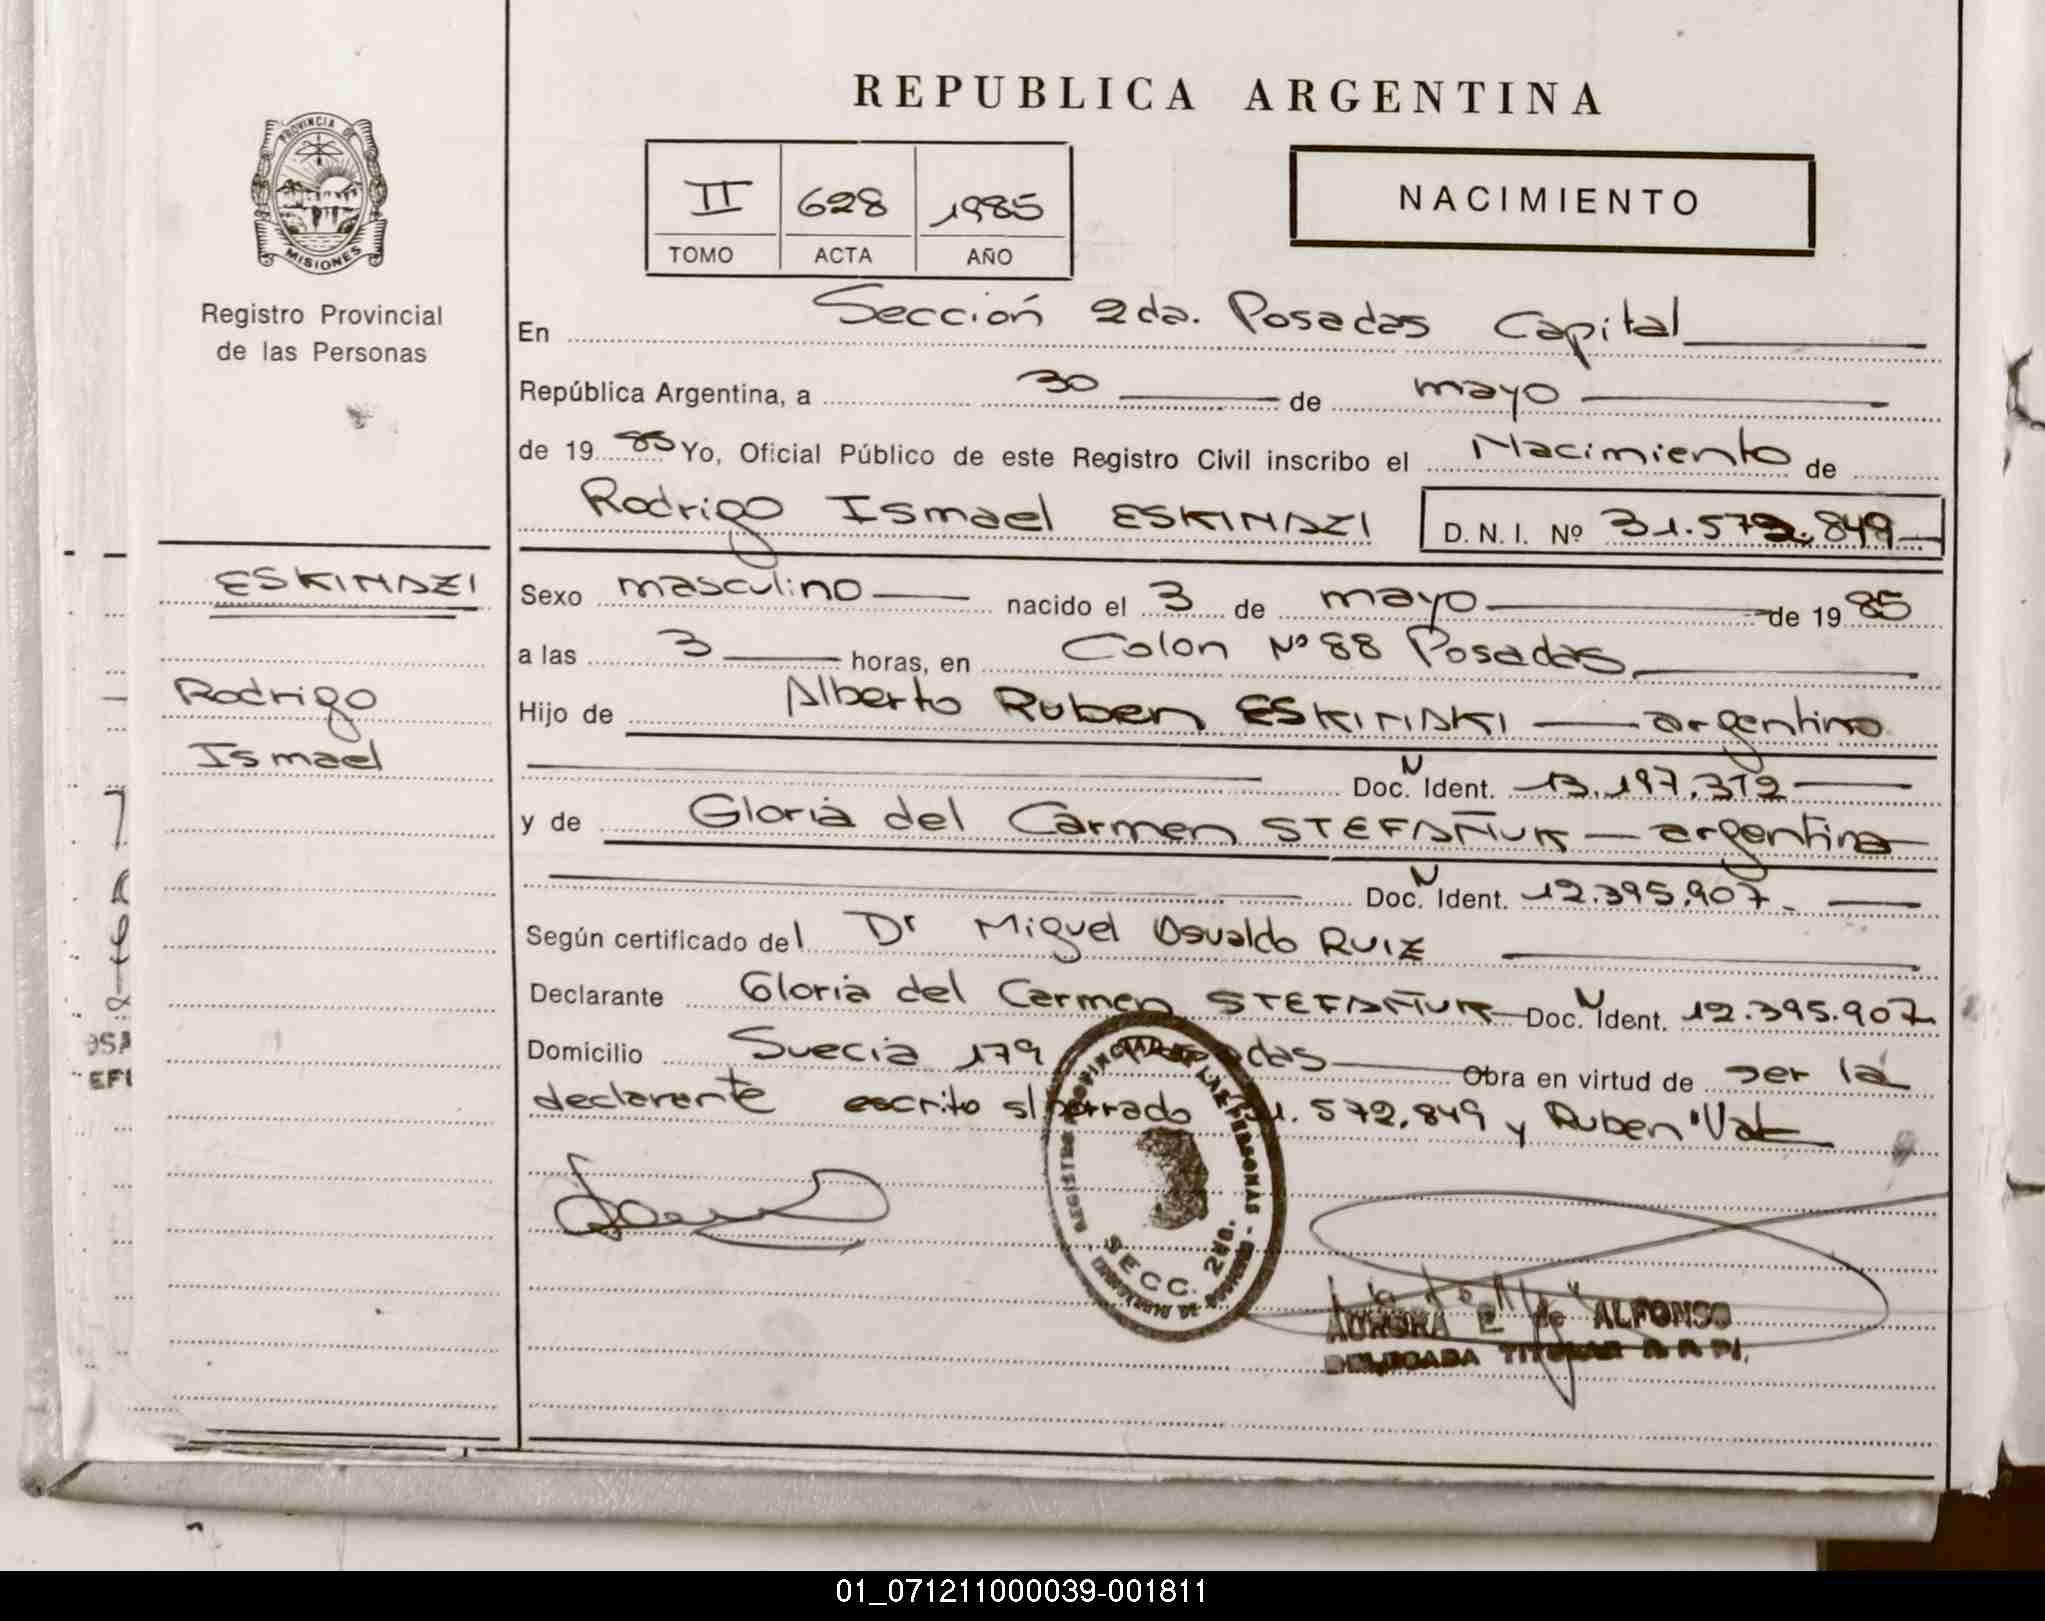 REPUBLICA ARGENTINA
PROVINCIA DE
MISIONES
Registro Provincial
de las Personas
II 628 1985
TOMO ACTA AÑO
NACIMIENTO
En Sección 2da. Posadas Capital
República Argentina, a 30 de mayo
de 1985 Yo, Oficial Público de este Registro Civil inscribo el Nacimiento de
Rodrigo Ismael ESKINAZI D. N. I. Nº 31.572.849
ESKINAZI
Rodrigo
Ismael
Sexo masculino nacido el 3 de mayo de 1985
a las 3 horas, en Colon Nº 88 Posadas
Hijo de Alberto Ruben ESKINAKI argentino
Doc. N Ident. 13.197.312
y de Gloria del Carmen STEFAÑUK argentina
Doc. N Ident. 12.395.907.
Según certificado del Dr Miguel Osvaldo RUIZ
Declarante Gloria del Carmen STEFAÑUK Doc. N Ident. 12.395.907
Domicilio Suecia 179 Posadas Obra en virtud de ser la
declarante escrito s/borrado 31.572.849 y Ruben "Vale
REGISTRO PROVINCIAL DE LAS PERSONAS
SECC. 2da.
AURORA E. de ALFONSO
DELEGADA TITULAR
01_071211000039-001811